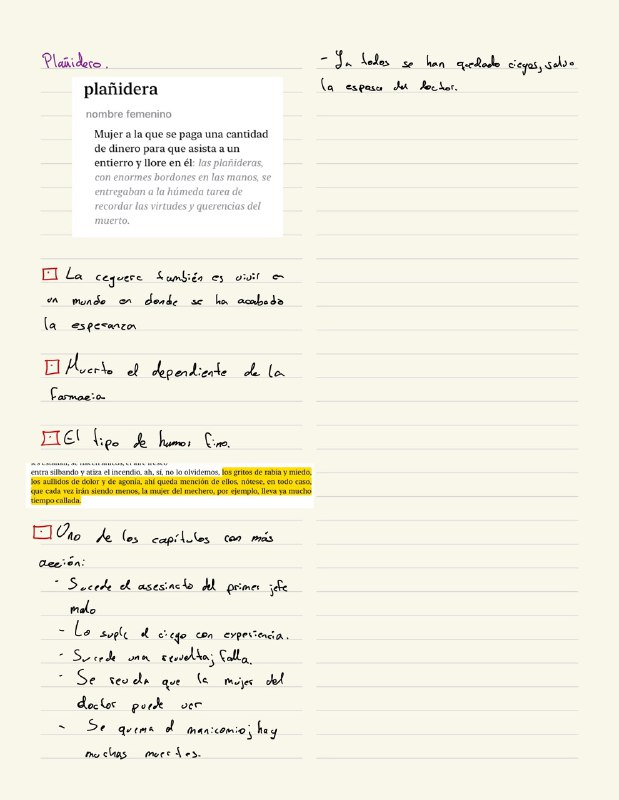 Plañidero.
plañidera
nombre femenino
Mujer a la que se paga una cantidad
de dinero para que asista a un
entierro y llore en él: las plañideras,
con enormes bordones en las manos, se
entregaban a la húmeda tarea de
recordar las virtudes y querencias del
muerto.
La ceguera también es vivir en
un mundo en donde se ha acabado
la esperanza
Muerto el dependiente de la
farmacia
El tipo de humor fino.
entra silbando y atiza el incendio, ah, sí, no lo olvidemos, los gritos de rabia y miedo,
los aullidos de dolor y de agonía, ahí queda mención de ellos, nótese, en todo caso,
que cada vez irán siendo menos, la mujer del mechero, por ejemplo, lleva ya mucho
tiempo callada.
Uno de los capítulos con más
acción:
- Sucede el asesinato del primer jefe
malo
- Lo suple el ciego con experiencia.
- Sucede una revuelta; falla.
- Se revela que la mujer del
doctor puede ver
- Se quema el manicomio; hay
muchas muertes.
- Ya todos se han quedado ciegos, salvo
la esposa del doctor.